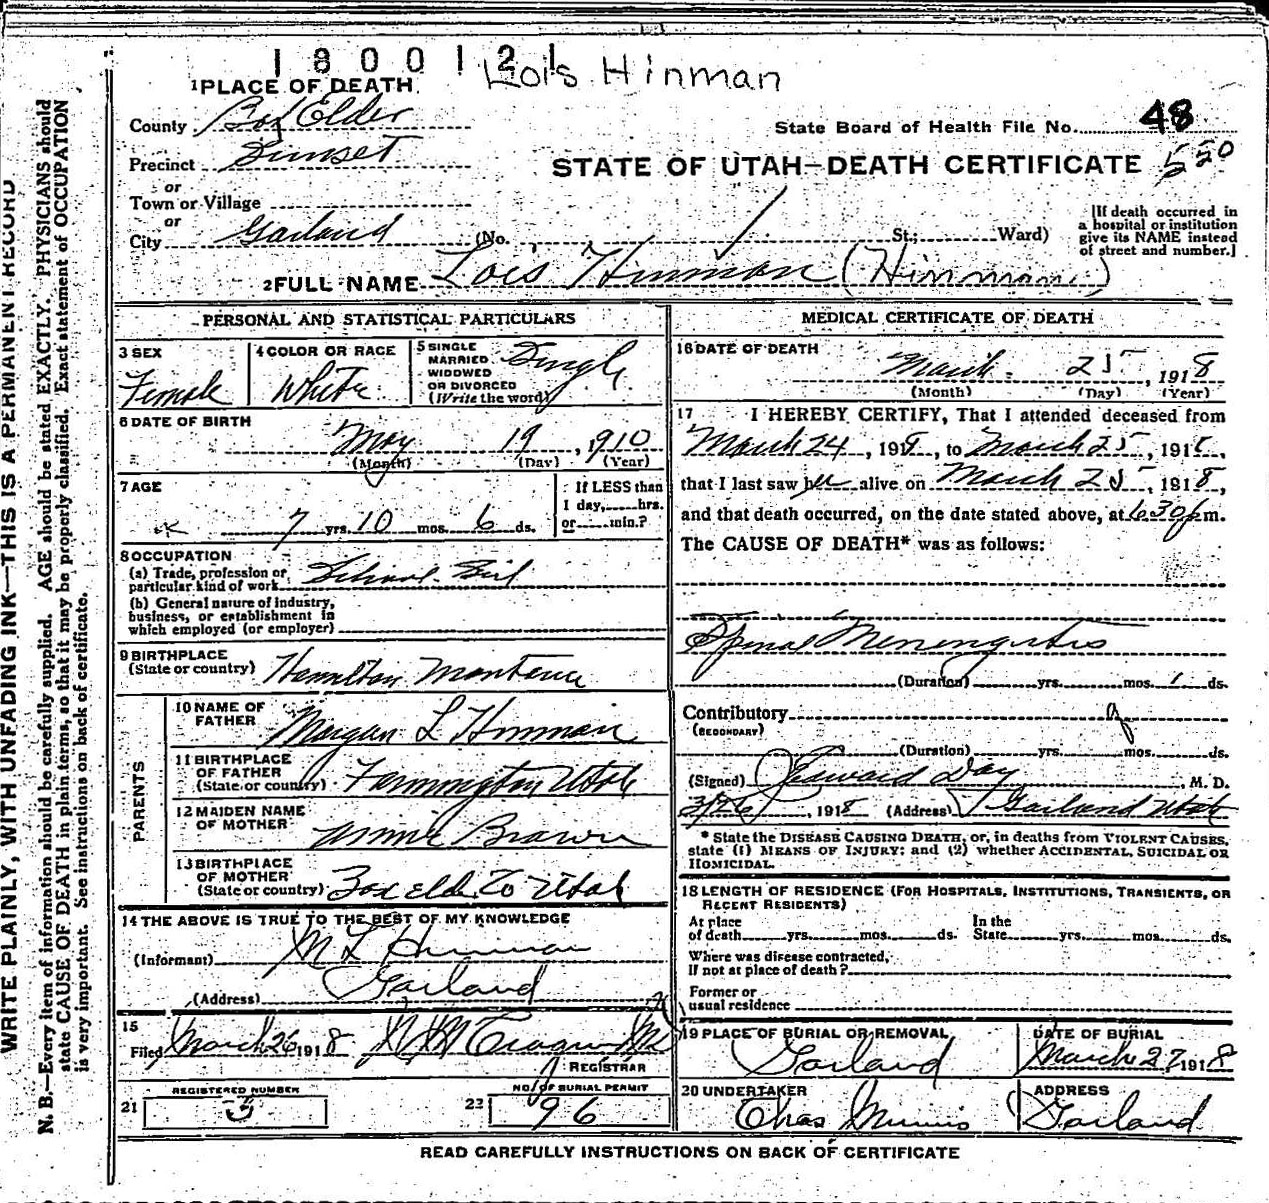 1800121 Lois Hinman
1 PLACE OF DEATH
County Box Elder
State Board of Health File No. 48
Precinct Sunset
STATE OF UTAH—DEATH CERTIFICATE 520
or
Town or Village
or
City Garland (No. St.; Ward)
[If death occurred in
a hospital or institution
give its NAME instead
of street and number.]
2 FULL NAME Lois Hinman (Hinman)
PERSONAL AND STATISTICAL PARTICULARS
3 SEX
Female
4 COLOR OR RACE
White
5 SINGLE
MARRIED
WIDOWED
OR DIVORCED
(Write the word)
Single
6 DATE OF BIRTH
May 19, 1910
(Month) (Day) (Year)
7 AGE
7 yrs. 10 mos. 6 ds.
If LESS than
1 day, hrs.
or min.?
8 OCCUPATION
(a) Trade, profession or
particular kind of work School Girl
(b) General nature of industry,
business, or establishment in
which employed (or employer)
9 BIRTHPLACE
(State or country) Hamilton Montana
PARENTS
10 NAME OF
FATHER Morgan L Hinman
11 BIRTHPLACE
OF FATHER
(State or country) Farmington Utah
12 MAIDEN NAME
OF MOTHER Annie Brown
13 BIRTHPLACE
OF MOTHER
(State or country) Box Elder Co Utah
14 THE ABOVE IS TRUE TO THE BEST OF MY KNOWLEDGE
(Informant) M L Hinman
(Address) Garland
15
Filed March 26 1918
REGISTRAR
REGISTERED NUMBER
21
NO. OF BURIAL PERMIT
22 96
MEDICAL CERTIFICATE OF DEATH
16 DATE OF DEATH
March 25, 1918
(Month) (Day) (Year)
17 I HEREBY CERTIFY, That I attended deceased from
March 24, 1918, to March 25, 1918,
that I last saw her alive on March 25, 1918,
and that death occurred, on the date stated above, at 6.30 p m.
The CAUSE OF DEATH* was as follows:
Spinal Meningitis
(Duration) yrs. mos. 1 ds.
Contributory
(SECONDARY)
(Duration) yrs. mos. ds.
(Signed) Edward Day, M. D.
3/26, 1918 (Address) Garland Utah
* State the DISEASE CAUSING DEATH, or, in deaths from VIOLENT CAUSES,
state (1) MEANS OF INJURY; and (2) whether ACCIDENTAL, SUICIDAL OR
HOMICIDAL.
18 LENGTH OF RESIDENCE (FOR HOSPITALS, INSTITUTIONS, TRANSIENTS, OR
RECENT RESIDENTS)
At place
of death yrs. mos. ds.
In the
State yrs. mos. ds.
Where was disease contracted,
If not at place of death?
Former or
usual residence
19 PLACE OF BURIAL OR REMOVAL
Garland
DATE OF BURIAL
March 27, 1918
20 UNDERTAKER
Chas
ADDRESS
Garland
READ CAREFULLY INSTRUCTIONS ON BACK OF CERTIFICATE
WRITE PLAINLY, WITH UNFADING INK—THIS IS A PERMANENT RECORD
N. B.—Every item of information should be carefully supplied. AGE should be stated EXACTLY. PHYSICIANS should
state CAUSE OF DEATH in plain terms, so that it may be properly classified. Exact statement of OCCUPATION
is very important. See instructions on back of certificate.